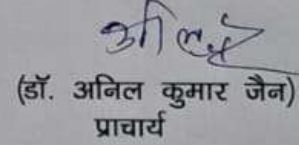 (डॉ. अनिल कुमार जैन)
प्राचार्य